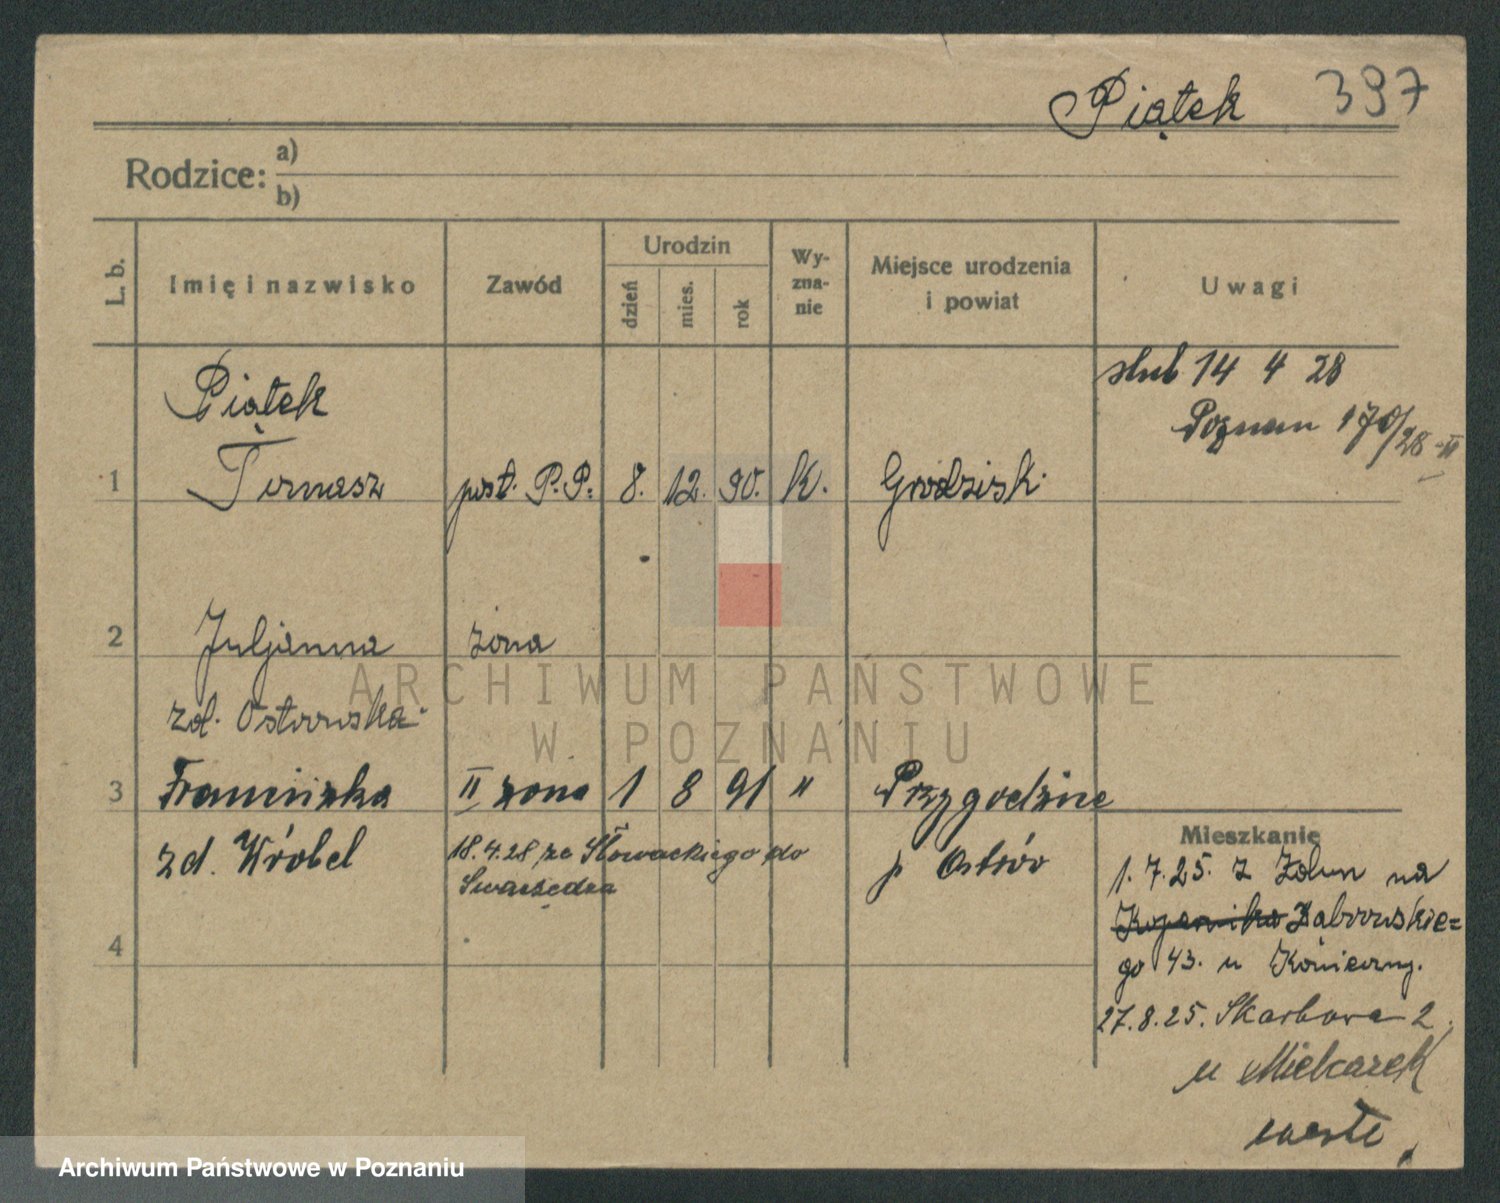 Piątek 397
Rodzice: a)
b)
L. b.
Imię i nazwisko
Zawód
Urodzin
dzień
mies.
rok
Wy-
zna-
nie
Miejsce urodzenia
i powiat
Uwagi
ślub 14 4 28
Poznan 170/28-II
Piątek
1 Tomasz post. P.P. 8. 12. 90. K. Grodzisk.
2 Juljanna żona
zd. Ostrowska.
3 Franciszka II żona 1 8 91 " Przygodzice
zd. Wróbel
18.4.28 ze Słowackiego do
Swarzędza
p Ostrów
4
Mieszkanie
1.7.25. z na
Kopernika Dąbrowskie=
go 43. u
27.8.25. Skarbowa 2.
u Mielcarek
ARCHIWUM PAŃSTWOWE
W POZNANIU
Archiwum Państwowe w Poznaniu